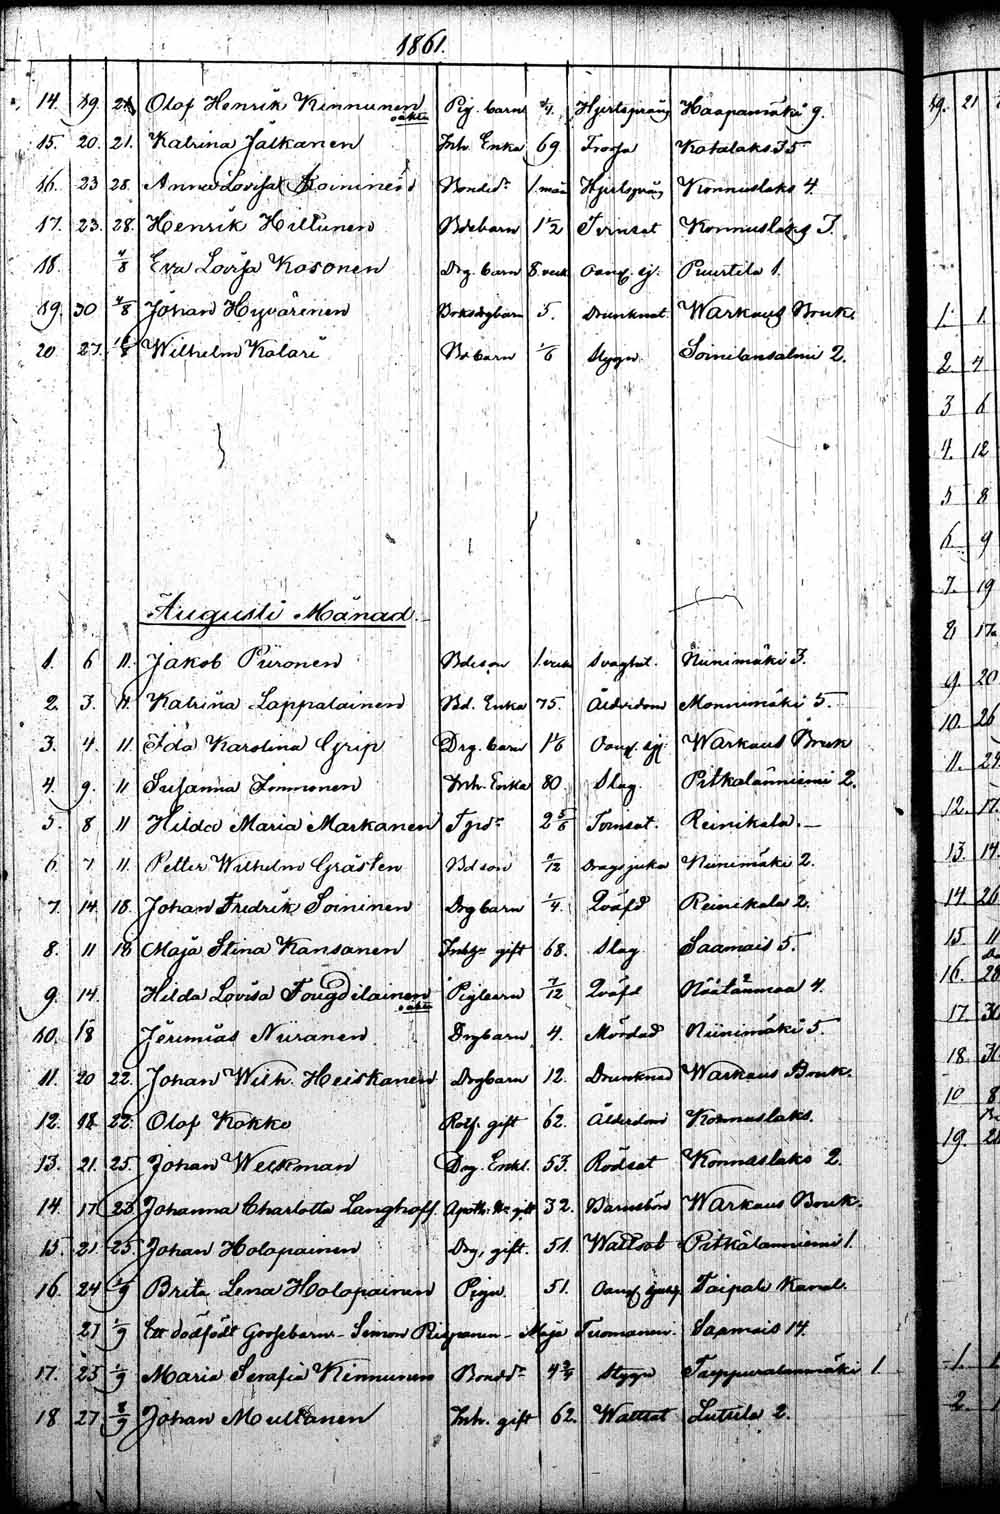 1861.
14. 19. 21. Olof Henrik Kinnunen oäkta Pig. barn 3/4. Hjertsprång Haapamäki 9. 19. 21
15. 20. 21. Katrina Jalkanen Inh. Enka 69 Frossa Kotalaks 35
16. 23 28. Anna Lovisa Roininen Bonded:r 1. mån Hjertsprång Konnuslaks 4.
17. 23. 28. Henrik Hiltunen Bdebarn 1 1/2 Tvinsot Konnuslaks 3.
18. 4/8 Eva Lovisa Kosonen Drg. barn 8 veck Oang. sj. Puurtila 1.
19. 30 4/8 Johan Hyvärinen barn 5. Drunknat Warkaus Bruk. 1. 1.
20 27. Wilhelm Kalari Bd barn 1/6 Slagn. Soinilansalmi 2. 2 4
3 6
4. 12
5 8
6. 9
7. 19
Augusti Månad. 8 17
1. 6 11. Jakob Piironen Bdeson 1. veck Svaghet. Niinimäki 3. 9. 20
2. 3. 11. Katrina Lappalainen Bd. Enka 75. Ålderdom Monnimäki 5. 10. 26
3. 4. 11. Ida Karolina Grip Drg. barn 1 1/6 Oang. sj. Warkaus Bruk 11. 24
4. 9. 11 Susanna Immonen Inh. Enka 80 Slag Pitkalanniemi 2. 12. 17.
5. 8 11 Hilda Maria Markanen 2 5/6 Tvinsot. Reinikala. 13. 14.
6. 7 11. Petter Wilhelm Gråsten Bdson 9/12 Dragsjuka Niinimäki 2.
7. 14. 18. Johan Fredrik Soininen Drg barn 1/4. Qväfd Reinikala 2. 14 26
8. 11 18 Maja Stina Kansanen gift 68. Slag Saamais 5. 15 11
9. 14. Hilda Lovisa Fougdilainen oäkta Pigbarn 7/12 Qväfd Näätänmaa 4. 16. 28
10. 18 Jeremias Niiranen Drgbarn 4. Mördad Niinimäki 5. 17. 30
11. 20 22. Johan Wilh. Heiskanen Drgbarn 12. Drunknad Warkaus Bruk. 18. 31
12. 18 22. Olof Kokko gift 62. Ålderdom Konnuslaks. 10 8
13. 21. 25. Johan Weckman Drg. Enkl. 53. Rödsot Konnuslaks 2. 19. 28
14. 17 25 Johanna Charlotta Langhoff gift 32. Barnsbörd Warkaus Bruk.
15. 21. 25. Johan Holopainen Drg. gift. 51. Wattsot Pitkälanniemi 1.
16. 24 1/9 Brita Lena Holopainen Pign. 51. Oang. sjukd. Taipale Kanal.
27 1/9 Ett dödfödt Gossebarn - Simon - Maja Tuomanen. Saamais 14.
17. 25 1/9 Maria Serafia Kinnunen Bondd:r 4 3/4 Slagn Tayppuralanmäki 1. 1. 1
18 27. 8/9 Johan Multanen Inh. gift 62. Wattsot Lutula 2. 2.